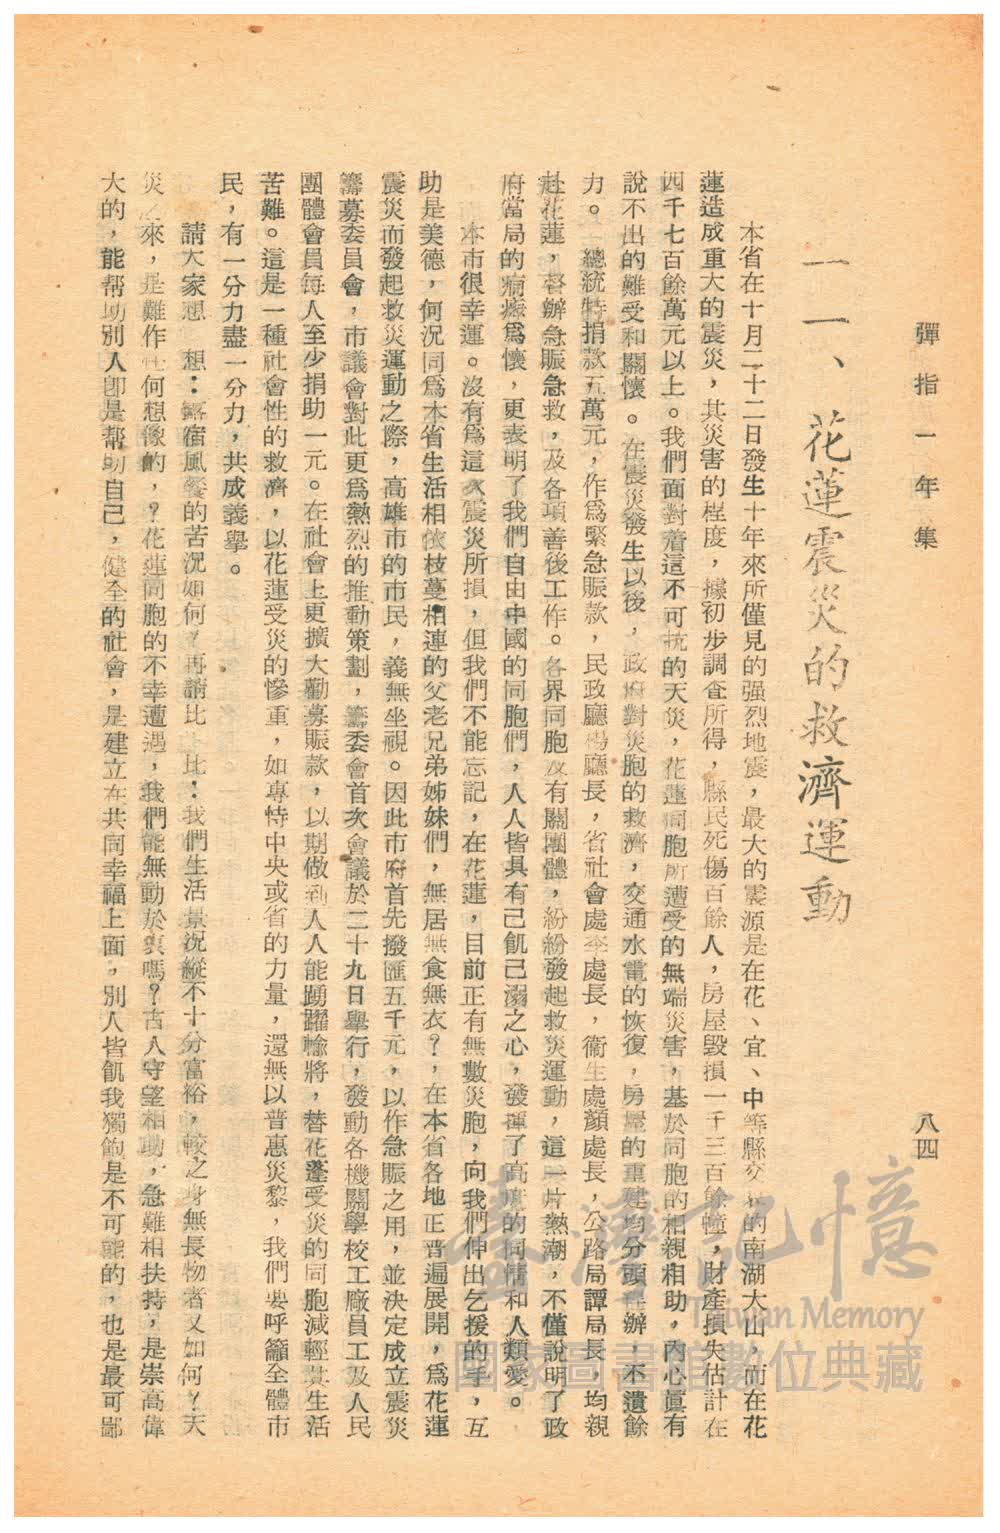 彈指一年集
八四
一一、花蓮震災的救濟運動
本省在十月二十二日發生十年來所僅見的强烈地震，最大的震源是在花、宜、中等縣交 的南湖大山，而在花
蓮造成重大的震災，其災害的程度，據初步調査所得，縣民死傷百餘人，房屋毀損一千三百餘幢，財產損失估計在
四千七百餘萬元以上。我們面對着這不可抗的天災，花蓮同胞所遭受的無端災害，基於同胞的相親相助，內心眞有
說不出的難受和關懷。在震災發生以後，政府對災胞的救濟，交通水電的恢復，房屋的重建均分頭 辦，不遺餘
力。　總統特捐款五萬元，作爲緊急賑款，民政廳楊廳長，省社會處李處長，衞生處顏處長，公路局譚局長，均親
赴花蓮，督辦急賑急救，及各項善後工作。各界同胞及有關團體，紛紛發起救災運動，這一片熱潮，不僅說明了政
府當局的痌瘝爲懷，更表明了我們自由中國的同胞們，人人皆具有己飢己溺之心，發揮了高度的同情和人類愛。
本市很幸運。沒有爲這次震災所損，但我們不能忘記，在花蓮，目前正有無數災胞，向我們伸出乞援的手，互
助是美德，何況同爲本省生活相依枝蔓相連的父老兄弟姊妹們，無居無食無衣？，在本省各地正普遍展開，爲花蓮
震災而發起救災運動之際，高雄市的市民，義無坐視。因此市府首先撥匯五千元，以作急賑之用，並決定成立震災
籌募委員會，市議會對此更爲熱烈的推動策劃，籌委會首次會議於二十九日舉行，發動各機關學校工廠員工及人民
團體會員每人至少捐助一元。在社會上更擴大勸募賑款，以期做到人人能踴躍輸將，替花蓮受災的同胞減輕其生活
苦難。這是一種社會性的救濟，以花蓮受災的慘重，如專恃中央或省的力量，還無以普惠災黎，我們要呼籲全體市
民，有一分力盡一分力，共成義舉。
請大家想 想：露宿風餐的苦況如何？再請比 比：我們生活景況縱不十分富裕，較之身無長物者又如何？天
災之來，是難作任何想像的，？花蓮同胞的不幸遭遇，我們能無動於衷嗎？古人守望相助，急難相扶持，是崇高偉
大的，能帮助別人卽是帮助自己，健全的社會，是建立在共同幸福上面，別人皆飢我獨飽是不可能的，也是最可鄙
臺灣記憶
Taiwan Memory
國家圖書館數位典藏